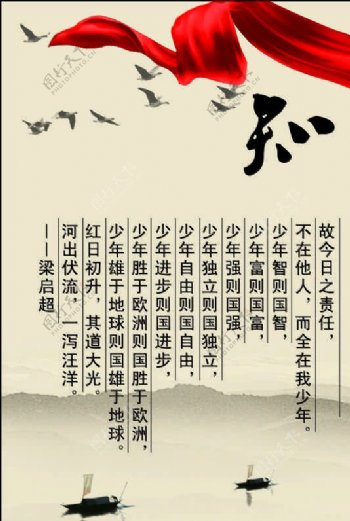 故今日之责任，
不在他人，而全在我少年。
少年智则国智，
少年富则国富，
少年强则国强，
少年独立则国独立，
少年自由则国自由，
少年进步则国进步，
少年胜于欧洲则国胜于欧洲，
少年雄于地球则国雄于地球。
红日初升，其道大光。
河出伏流，一泻汪洋。
——梁启超